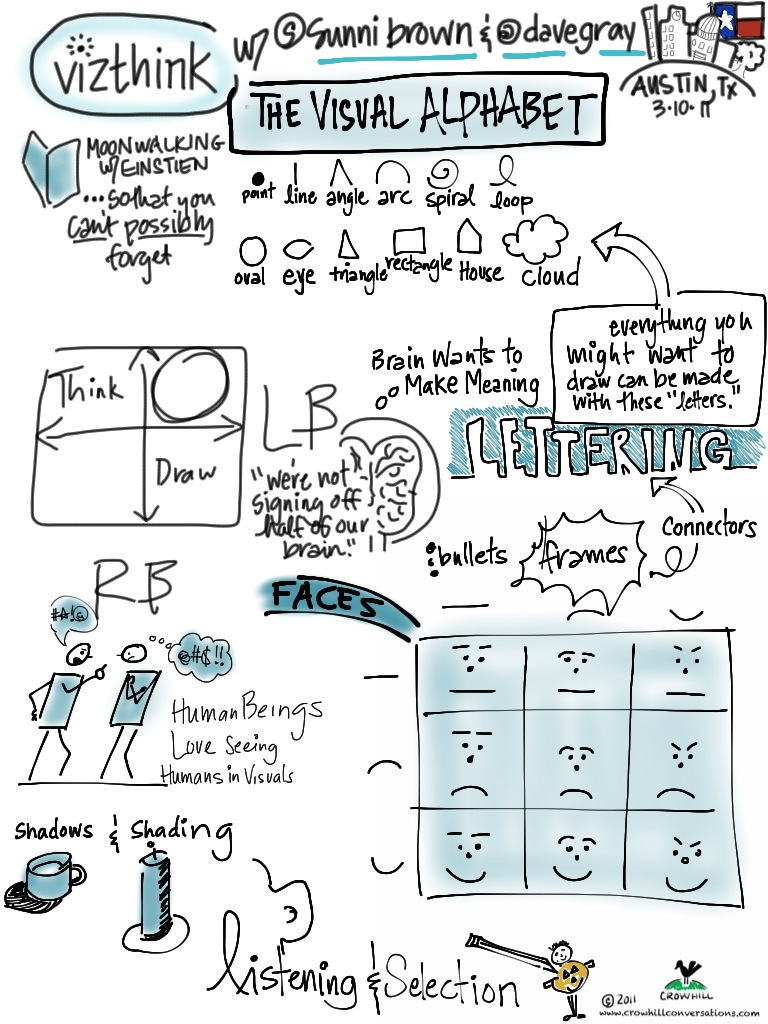 vizthink w/ @sunni brown & @davegray
AUSTIN, TX
3-10-11
THE VISUAL ALPHABET
MOONWALKING
W/EINSTIEN
...so that you
can't possibly
forget
point line angle arc spiral loop
oval eye triangle rectangle House cloud
everything you
might want to
draw can be made
with these "letters."
Brain Wants to
Make Meaning
Think
Draw
LB
"we're not
signing off
half of our
brain."
LETTERING
Connectors
:bullets
frames
RB
FACES
#A!@
@#$!!
Human Beings
Love Seeing
Humans in Visuals
Shadows & Shading
Listening & Selection
© 2011
CROWHILL
www.crowhillconversations.com